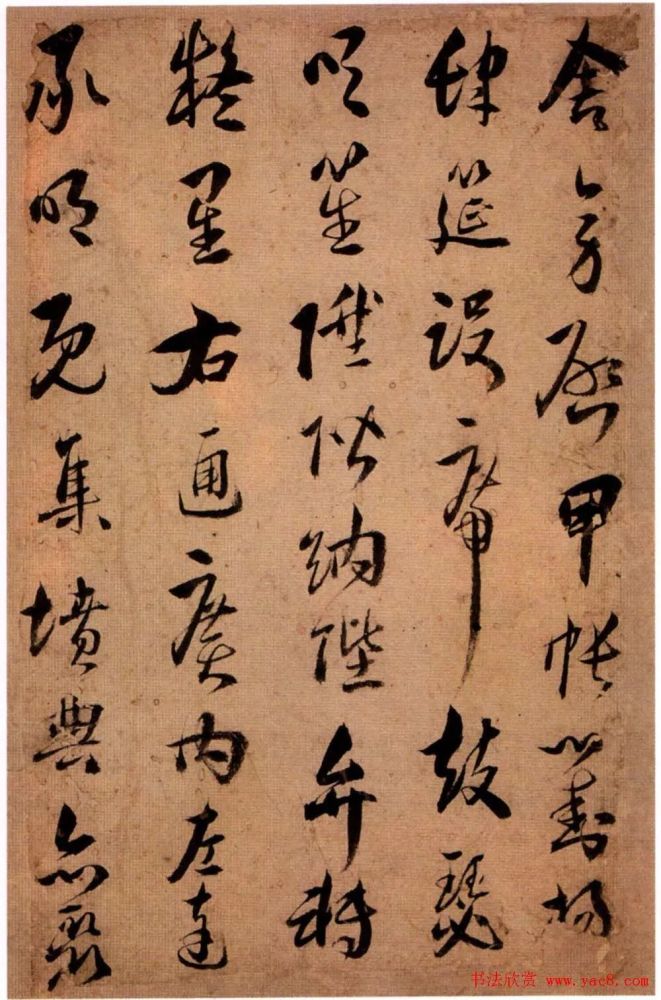 舍傍啓甲帳對楹
肆筵設席鼓瑟
吹笙陞階納陛弁轉
疑星右通廣內左達
承明既集墳典亦聚
书法欣赏 www.yac8.com